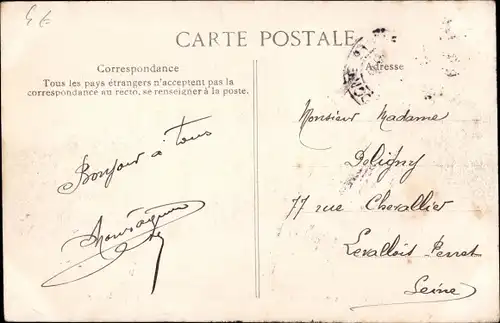 4 €
CARTE POSTALE
Correspondance
Tous les pays étrangers n'acceptent pas la
correspondance au recto, se renseigner à la poste.
Bonjour à tous
Adresse
Monsieur Madame
Deligny
77 rue Chevallier
Levallois Perret
Seine